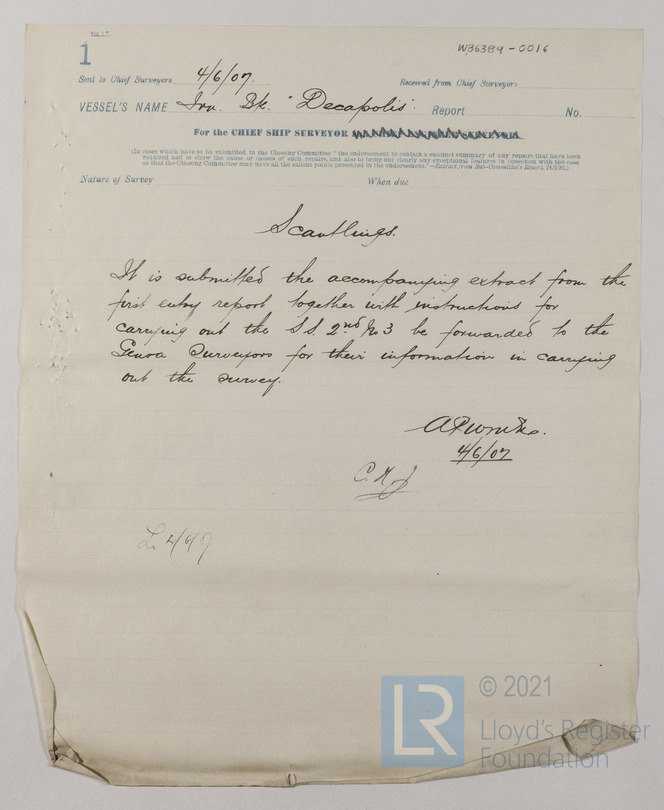 W363B9-0016
1
Sent to Chief Surveyors 4/6/07. Received from Chief Surveyors
VESSEL'S NAME Irn. Bk. "Decapolis". Report No.
For the CHIEF SHIP SURVEYOR
(In cases which have to be submitted to the Classing Committee "the endorsement to contain a succinct summary of any repairs that have been
required and to show the cause or causes of such repairs, and also to bring out clearly any exceptional features in connection with the case
so that the Classing Committee may have all the salient points presented in the endorsement."—Extract from Sub-Committee's Report,
Nature of Survey When due
Scantlings.
It is submitted the accompanying extract from the
first entry report together with instructions for
carrying out the S.S. 2nd No 3 be forwarded to the
Genoa Surveyors for their information in carrying
out the survey.
4/6/07
© 2021
LR
Lloyd's Register
Foundation